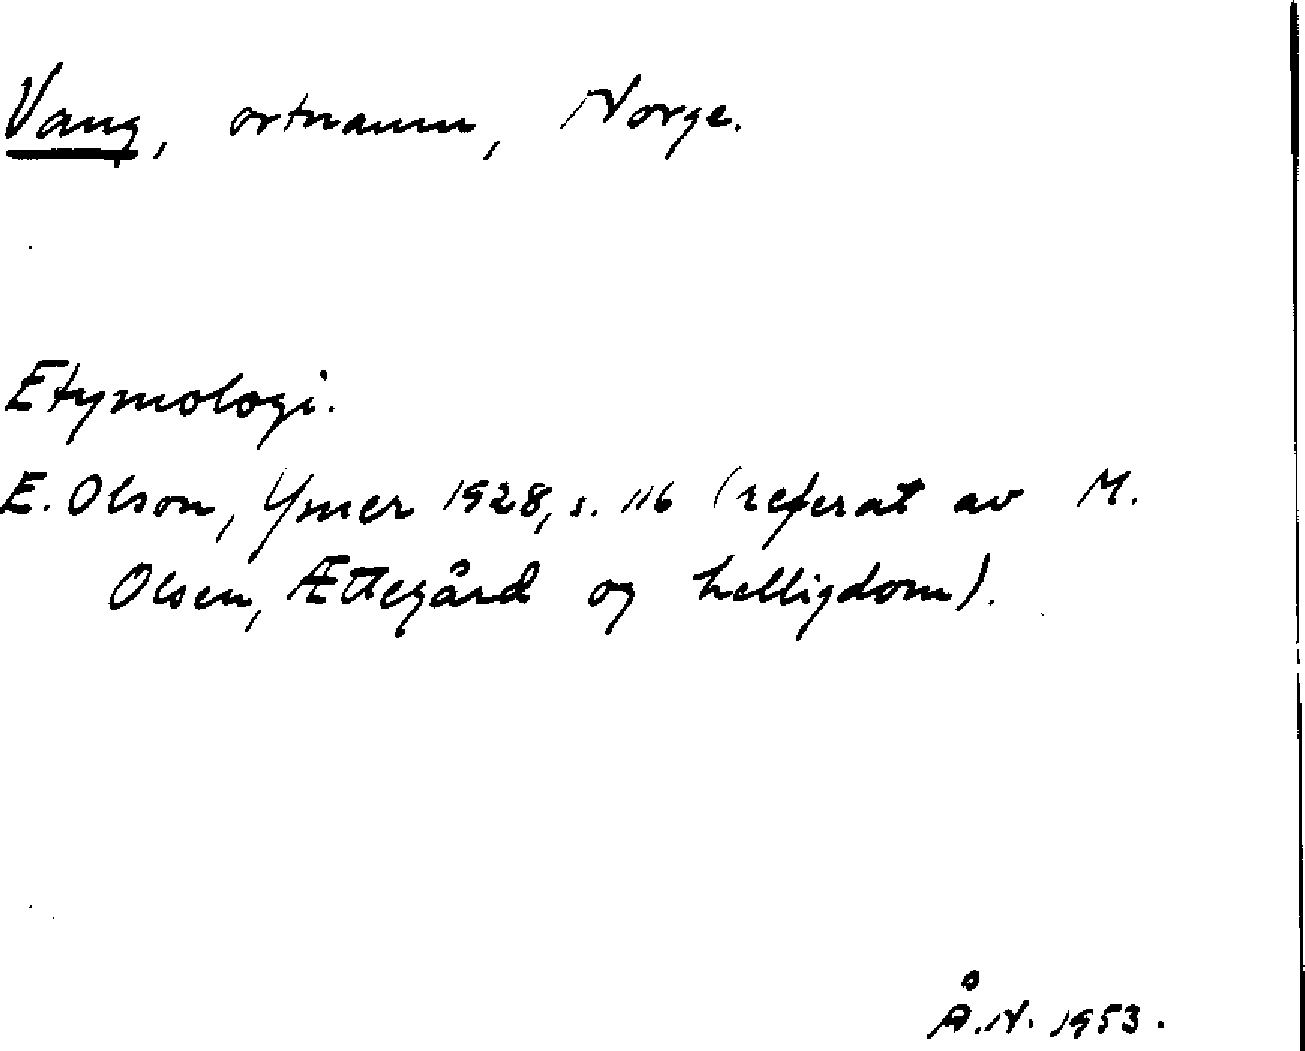 Vang, ortnamn, Norge.
Etymologi.
E. Olson, Ymer 1928, s. 116 (referat av M.
Olsen, Ættegård og helligdom).
Å.N. 1953.